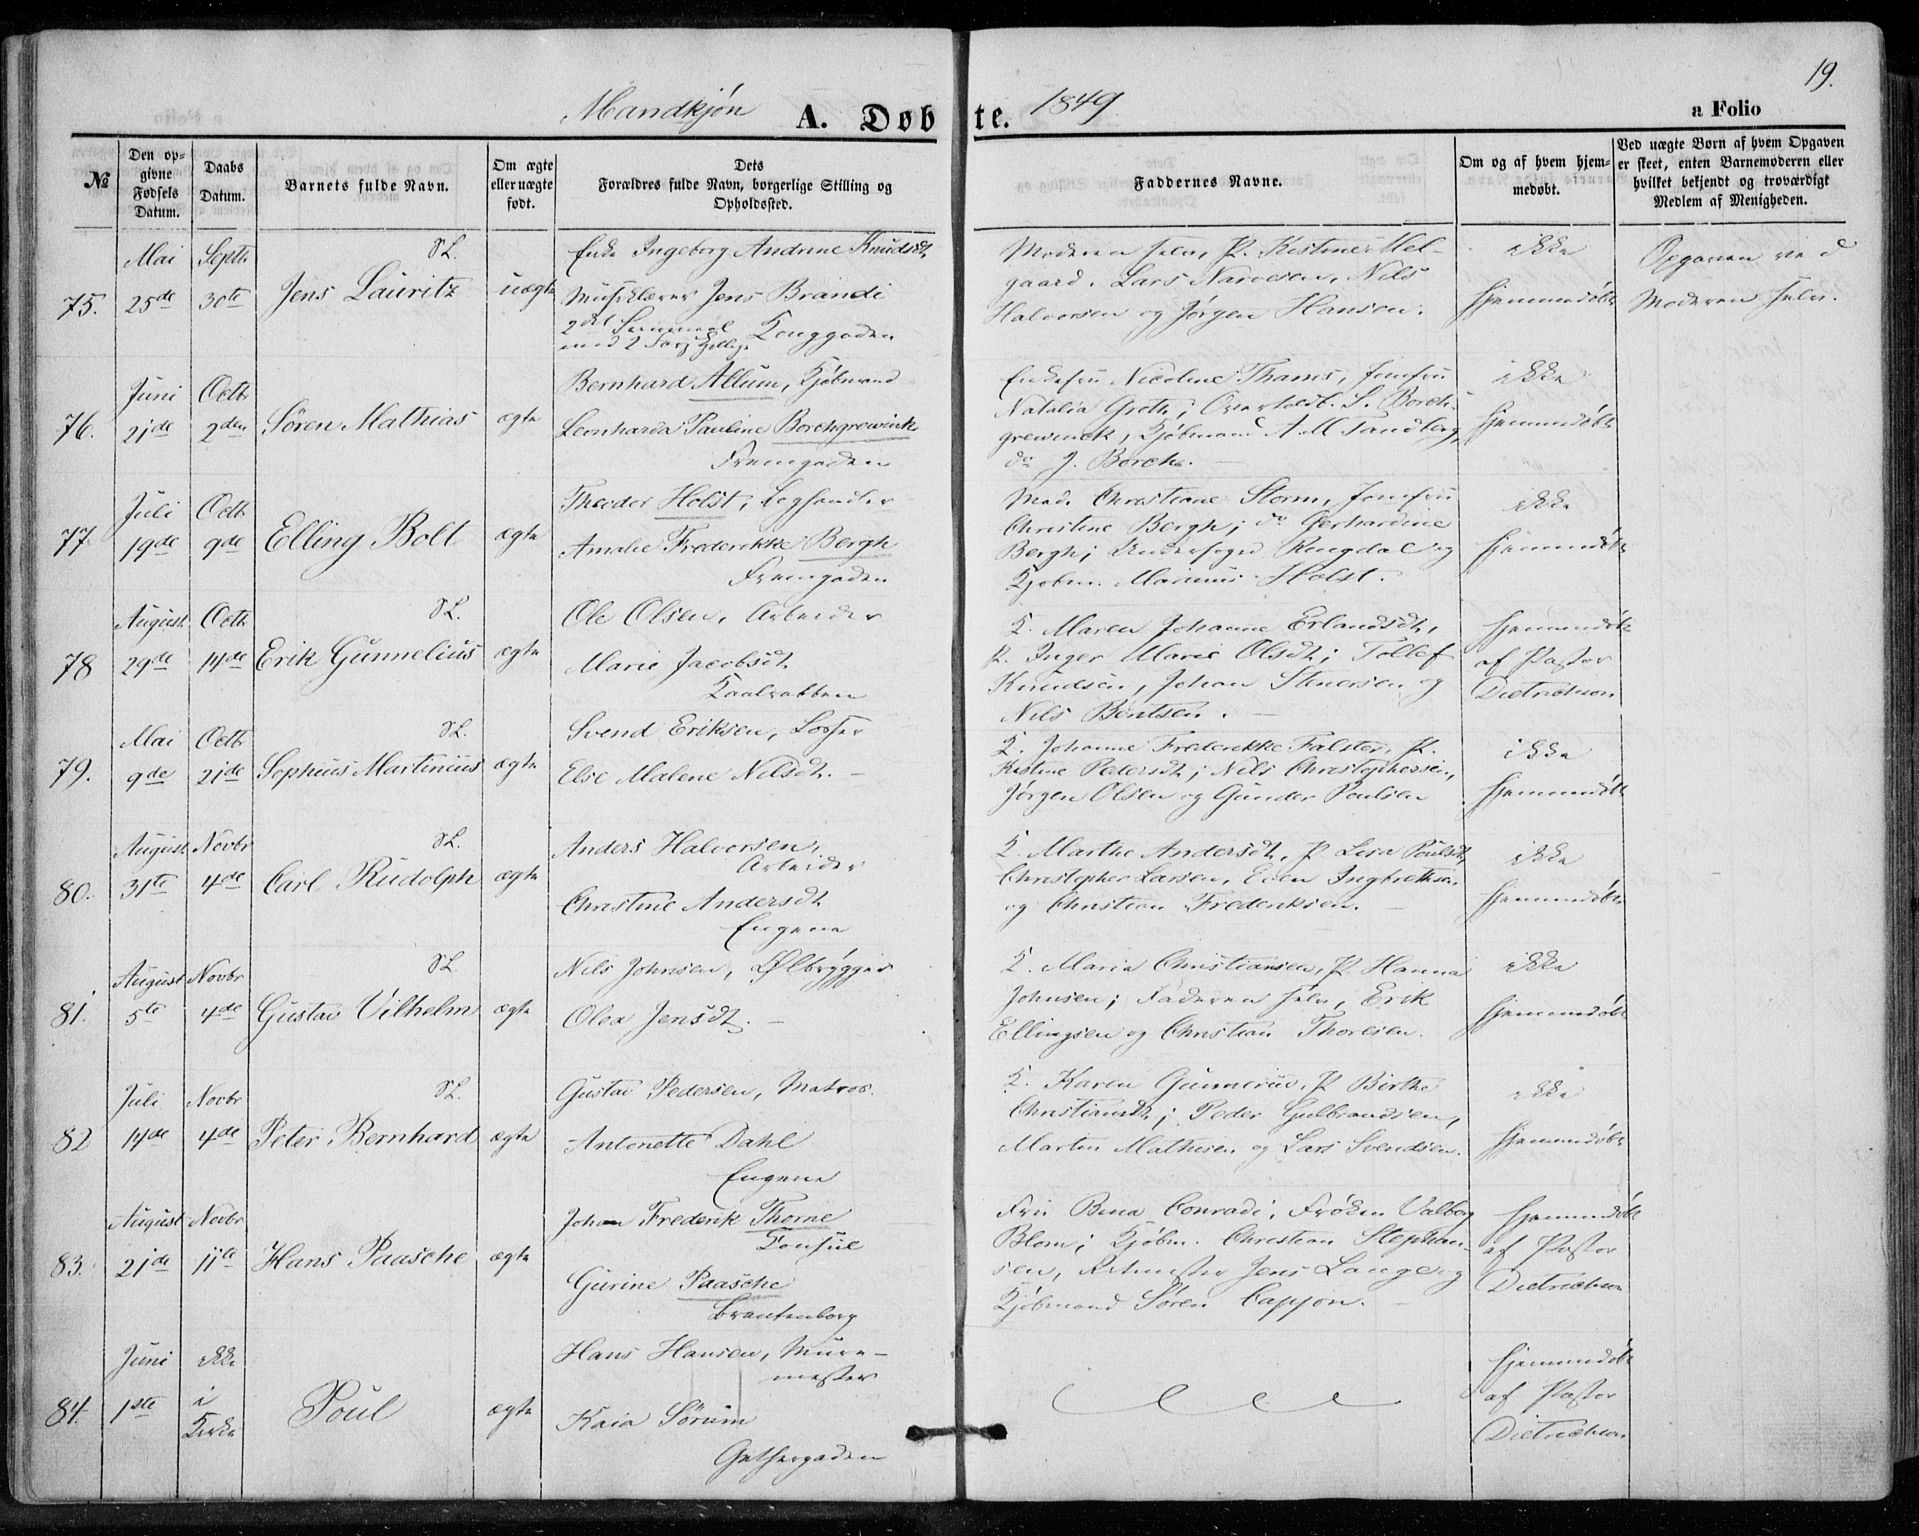 Mandkjøn A. Døbte. 1849.
a Folio 19.
№
Den opgivne Fødsels Datum.
Daabs Datum.
Barnets fulde Navn.
Om ægte eller uægte født.
Dets Forældres fulde Navn, borgerlige Stilling og Opholdssted.
Faddernes Navne.
Om og af hvem hjemmedøbt.
Ved uægte Børn af hvem Opgaven er skeet, enten Barnemoderen eller hvilket bekjendt og troværdigt Medlem af Menigheden.
75. Mai 25de Septbr 30te SL. Jens Lauritz uægte
Enke Ingeborg Andrine Knudsdt
Musiklærer Jens Brandi
Konggaden
Moderen selv, P. Kistine Mel-
gaard, Lars Narvesen, Nils
Halvorsen og Jørgen Hansen.
ikke
hjemmedøbt
Opgaven ved
Moderen selv.
76. Juni 21de Octb 2den Søren Mathias ægte
Bernhard Allum, Kjøbmand
Leonharda Pauline Borchgrewink
Fremgaden
Enkefru Nicoline Thams, Jomfru
Natalia Groth; Overtoldb. S. Borch-
grewinck, Kjøbmand A M Sandberg,
do J. Borch.
ikke
hjemmedøbt
77 Juli 19de Octb 9de Elling Bolt ægte
Theodor Holst, Logsandler
Amalie Frederikke Bergh
Fremgaden
Mad. Christiane Storm, Jomfru
Christine Bergh; do Gerhardine
Bergh; Underfoged Ringdal og
Kjøbm. Marinius Holst.
ikke
hjemmedøbt
78 August 29de Octb 14de SL. Erik Gunnelius ægte
Ole Olsen, Arbeider
Marie Jacobsdt
Kaalrabben
K. Maren Johanne Erlandsdt,
P. Inger Marie Olsdt; Tollef
Knudsen, Johan Stenersen og
Nils Bentsen.
hjemmedøbt
af Pastor
Dietrichson
79. Mai 9de Octb 21de SL. Sophus Martinius ægte
Svend Eriksen, Losser
Else Malene Nilsdt.
K. Johanne Frederikke Falster, P.
Kistine Pedersdt; Nils Christophersen,
Jørgen Olsen og Gunder Poulsen
ikke
hjemmedøbt
80. August 31te Novbr 4de SL. Carl Rudolph ægte
Anders Halvorsen,
Arbeider
Christine Andersdt
Engene
K. Marthe Andersdt, P Lisa Poulsdt,
Christopher Larsen, Even Ingbrethsen
og Christian Frederiksen.
ikke
hjemmedøbt
81. August 5te Novbr 4de SL. Gustav Vilhelm ægte
Nils Johnsen, Ølbrygger
Olea Jensdt.
K. Maria Christiansen, P. Hanna
Johnsen; Faderen selv, Erik
Ellingsen og Christian Thoresen.
ikke
hjemmedøbt
82 Juli 14de Novbr 4de SL. Peter Bernhard ægte
Gustav Pedersen, Matros.
Antonette Dahl
Engene
K. Karen Gunnerius, P Birthe
Christiansdt; Peder Gulbrandsen,
Martin Mathisen og Lars Svendsen.
ikke
hjemmedøbt
83. August 21de Novbr 11te Hans Paasche ægte
Johan Frederik Thorne
Konsul
Gurine Paasche
Brantenborg
Fru Bina Conradi, Frøken Valborg
Blom; Kjøbm. Christian Stephan-
sen, Jens Lange og
Kjøbmand Søren Capjon.
hjemmedøbt
af Pastor
Dietrichson
84 Juni 1ste ikke i Kirke Poul ægte
Hans Hansen, Mure-
mester
Kaia Sørum
Gethergaden
hjemmedøbt
af Pastor
Dietrichson